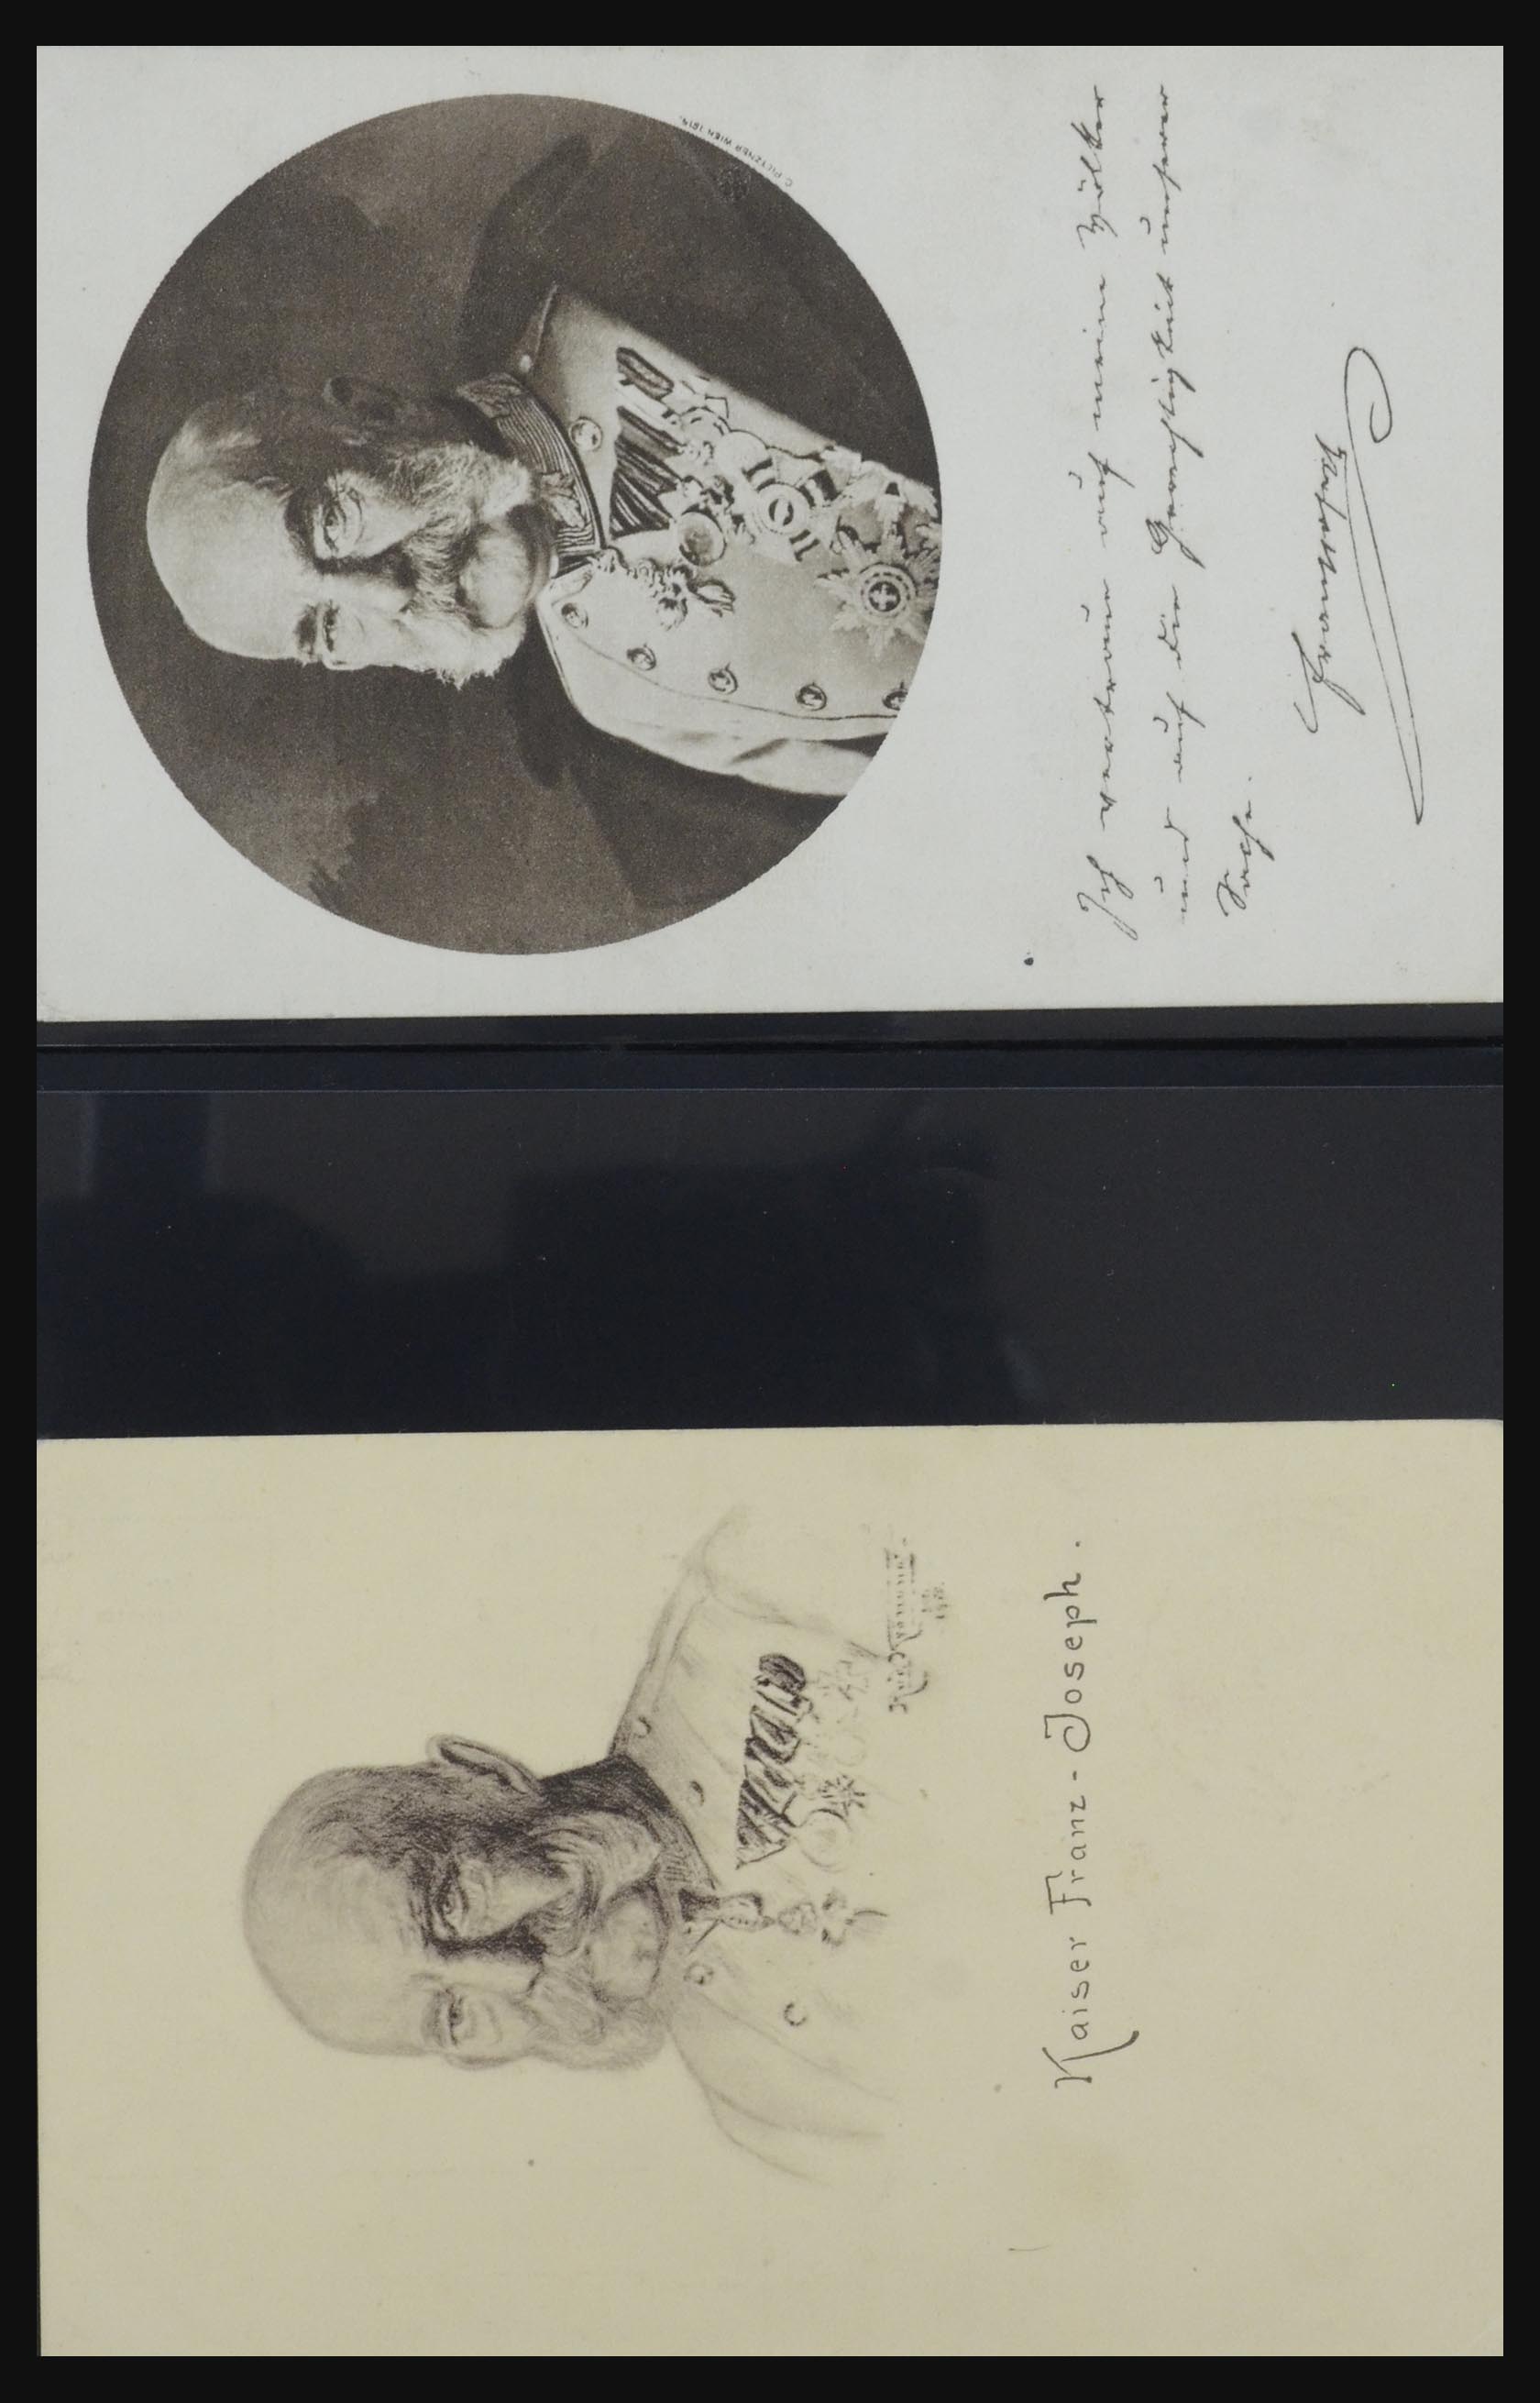 C. PIETZNER WIEN 1914.
Ich vertraue auf meine Völker
und auf die Gerechtigkeit unserer
Sache.
Franz Joseph
Kaiser Franz-Joseph.